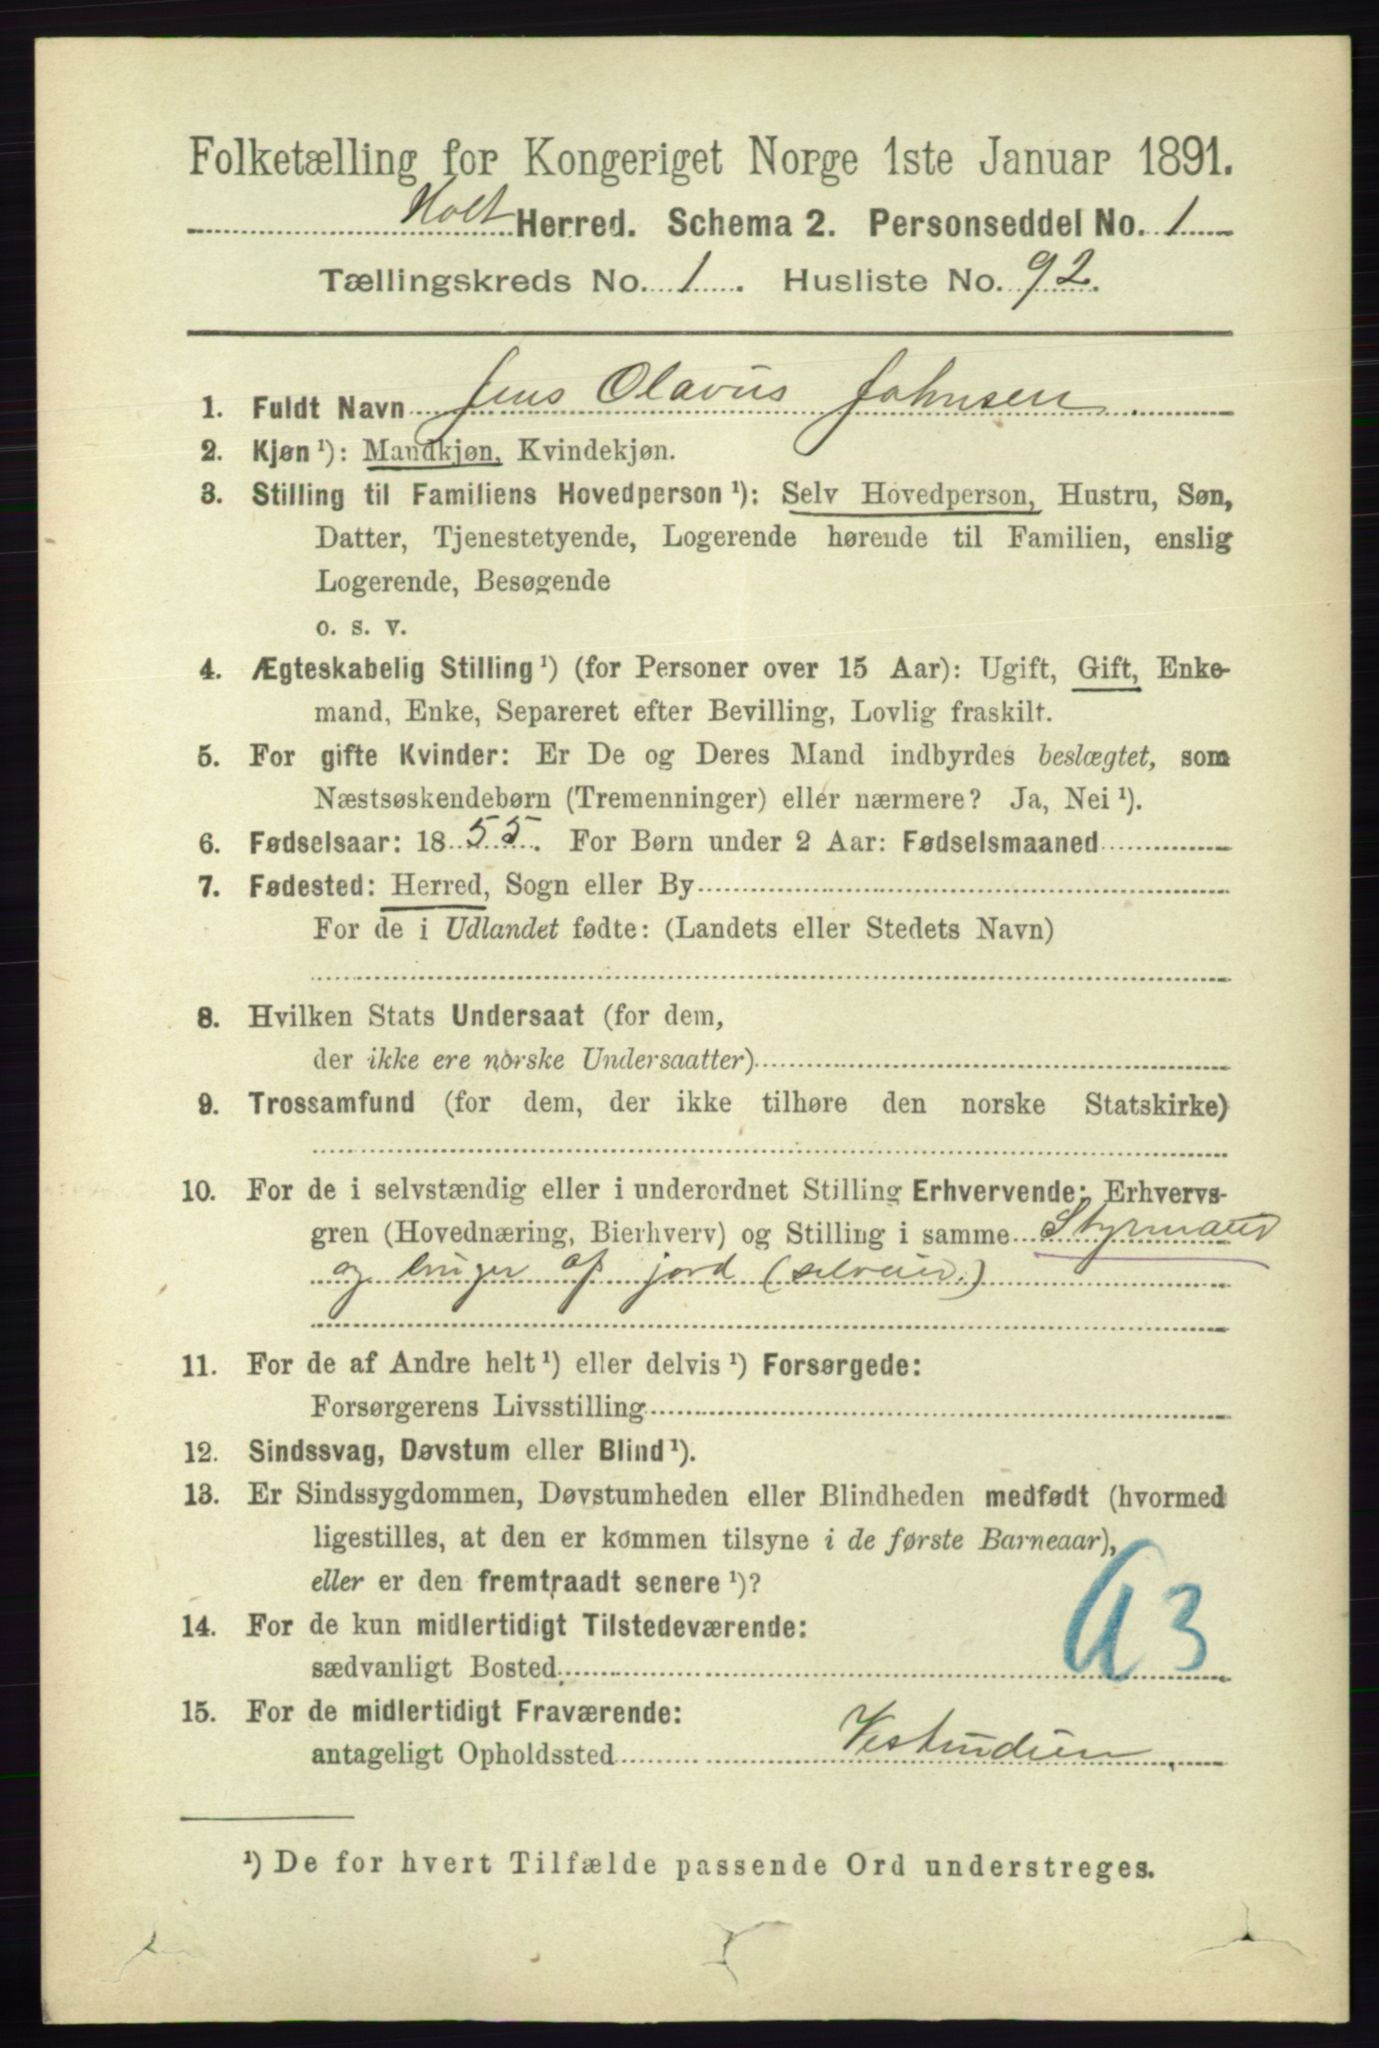 Folketælling for Kongeriget Norge 1ste Januar 1891.
Holt Herred. Schema 2. Personseddel No. 1
Tællingskreds No. 1. Husliste No. 92.
1. Fuldt Navn Jens Olavus Johnsen
2. Kjøn ¹): Mandkjøn, Kvindekjøn.
3. Stilling til Familiens Hovedperson ¹): Selv Hovedperson, Hustru, Søn,
Datter, Tjenestetyende, Logerende hørende til Familien, enslig
Logerende, Besøgende
o. s. v.
4. Ægteskabelig Stilling ¹) (for Personer over 15 Aar): Ugift, Gift, Enke-
mand, Enke, Separeret efter Bevilling, Lovlig fraskilt.
5. For gifte Kvinder: Er De og Deres Mand indbyrdes beslægtet, som
Næstsøskendebørn (Tremenninger) eller nærmere? Ja, Nei ¹).
6. Fødselsaar: 1855. For Børn under 2 Aar: Fødselsmaaned
7. Fødested: Herred, Sogn eller By
For de i Udlandet fødte: (Landets eller Stedets Navn)
8. Hvilken Stats Undersaat (for dem,
der ikke ere norske Undersaatter)
9. Trossamfund (for dem, der ikke tilhøre den norske Statskirke)
10. For de i selvstændig eller i underordnet Stilling Erhvervende: Erhvervs-
gren (Hovednæring, Bierhverv) og Stilling i samme Styrmand
og bruger af jord (selveier.)
11. For de af Andre helt ¹) eller delvis ¹) Forsørgede:
Forsørgerens Livsstilling
12. Sindssvag, Døvstum eller Blind ¹).
13. Er Sindssygdommen, Døvstumheden eller Blindheden medfødt (hvormed
ligestilles, at den er kommen tilsyne i de første Barneaar),
eller er den fremtraadt senere ¹)?
14. For de kun midlertidigt Tilstedeværende:
sædvanligt Bosted
G3
15. For de midlertidigt Fraværende:
antageligt Opholdssted Vestindien
¹) De for hvert Tilfælde passende Ord understreges.